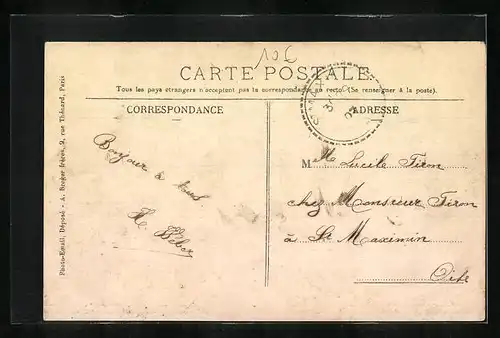 10 £
CARTE POSTALE
Tous les pays étrangers n'acceptent pas la correspondance au recto. (Se renseigner à la poste).
CORRESPONDANCE
ADRESSE
Bonjour à tous
Photo-Email, Déposé - A. Breger frères, 9, rue Thénard, Paris
Mlle Lucile Tiron
chez Monsieur Tiron
à St Maximin
Oise